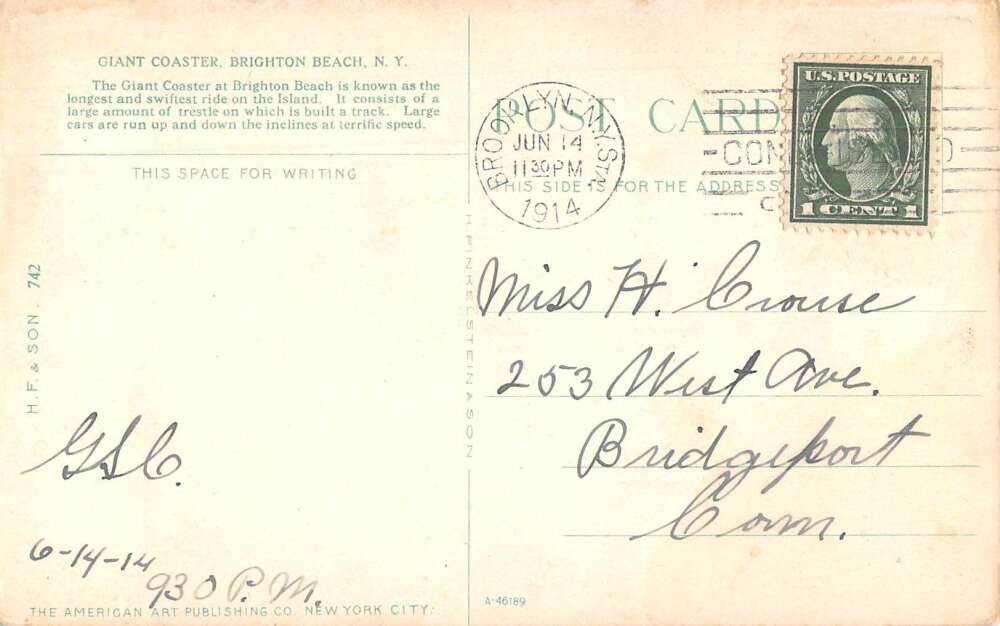 GIANT COASTER, BRIGHTON BEACH, N. Y.
The Giant Coaster at Brighton Beach is known as the
longest and swiftest ride on the Island. It consists of a
large amount of trestle on which is built a track. Large
cars are run up and down the inclines at terrific speed.
THIS SPACE FOR WRITING
H. F. & SON. 742
GSC.
6-14-14
930 P.M.
THE AMERICAN ART PUBLISHING CO. NEW YORK CITY.
H FINKELSTEIN & SON
POST CARD
THIS SIDE IS FOR THE ADDRESS
BROOKLYN, N.Y. STA.
JUN 14
11 30 PM
1914
U.S. POSTAGE
1 CENT 1
Miss H. Crouse
253 West Ave.
Bridgeport
Conn.
A-46189